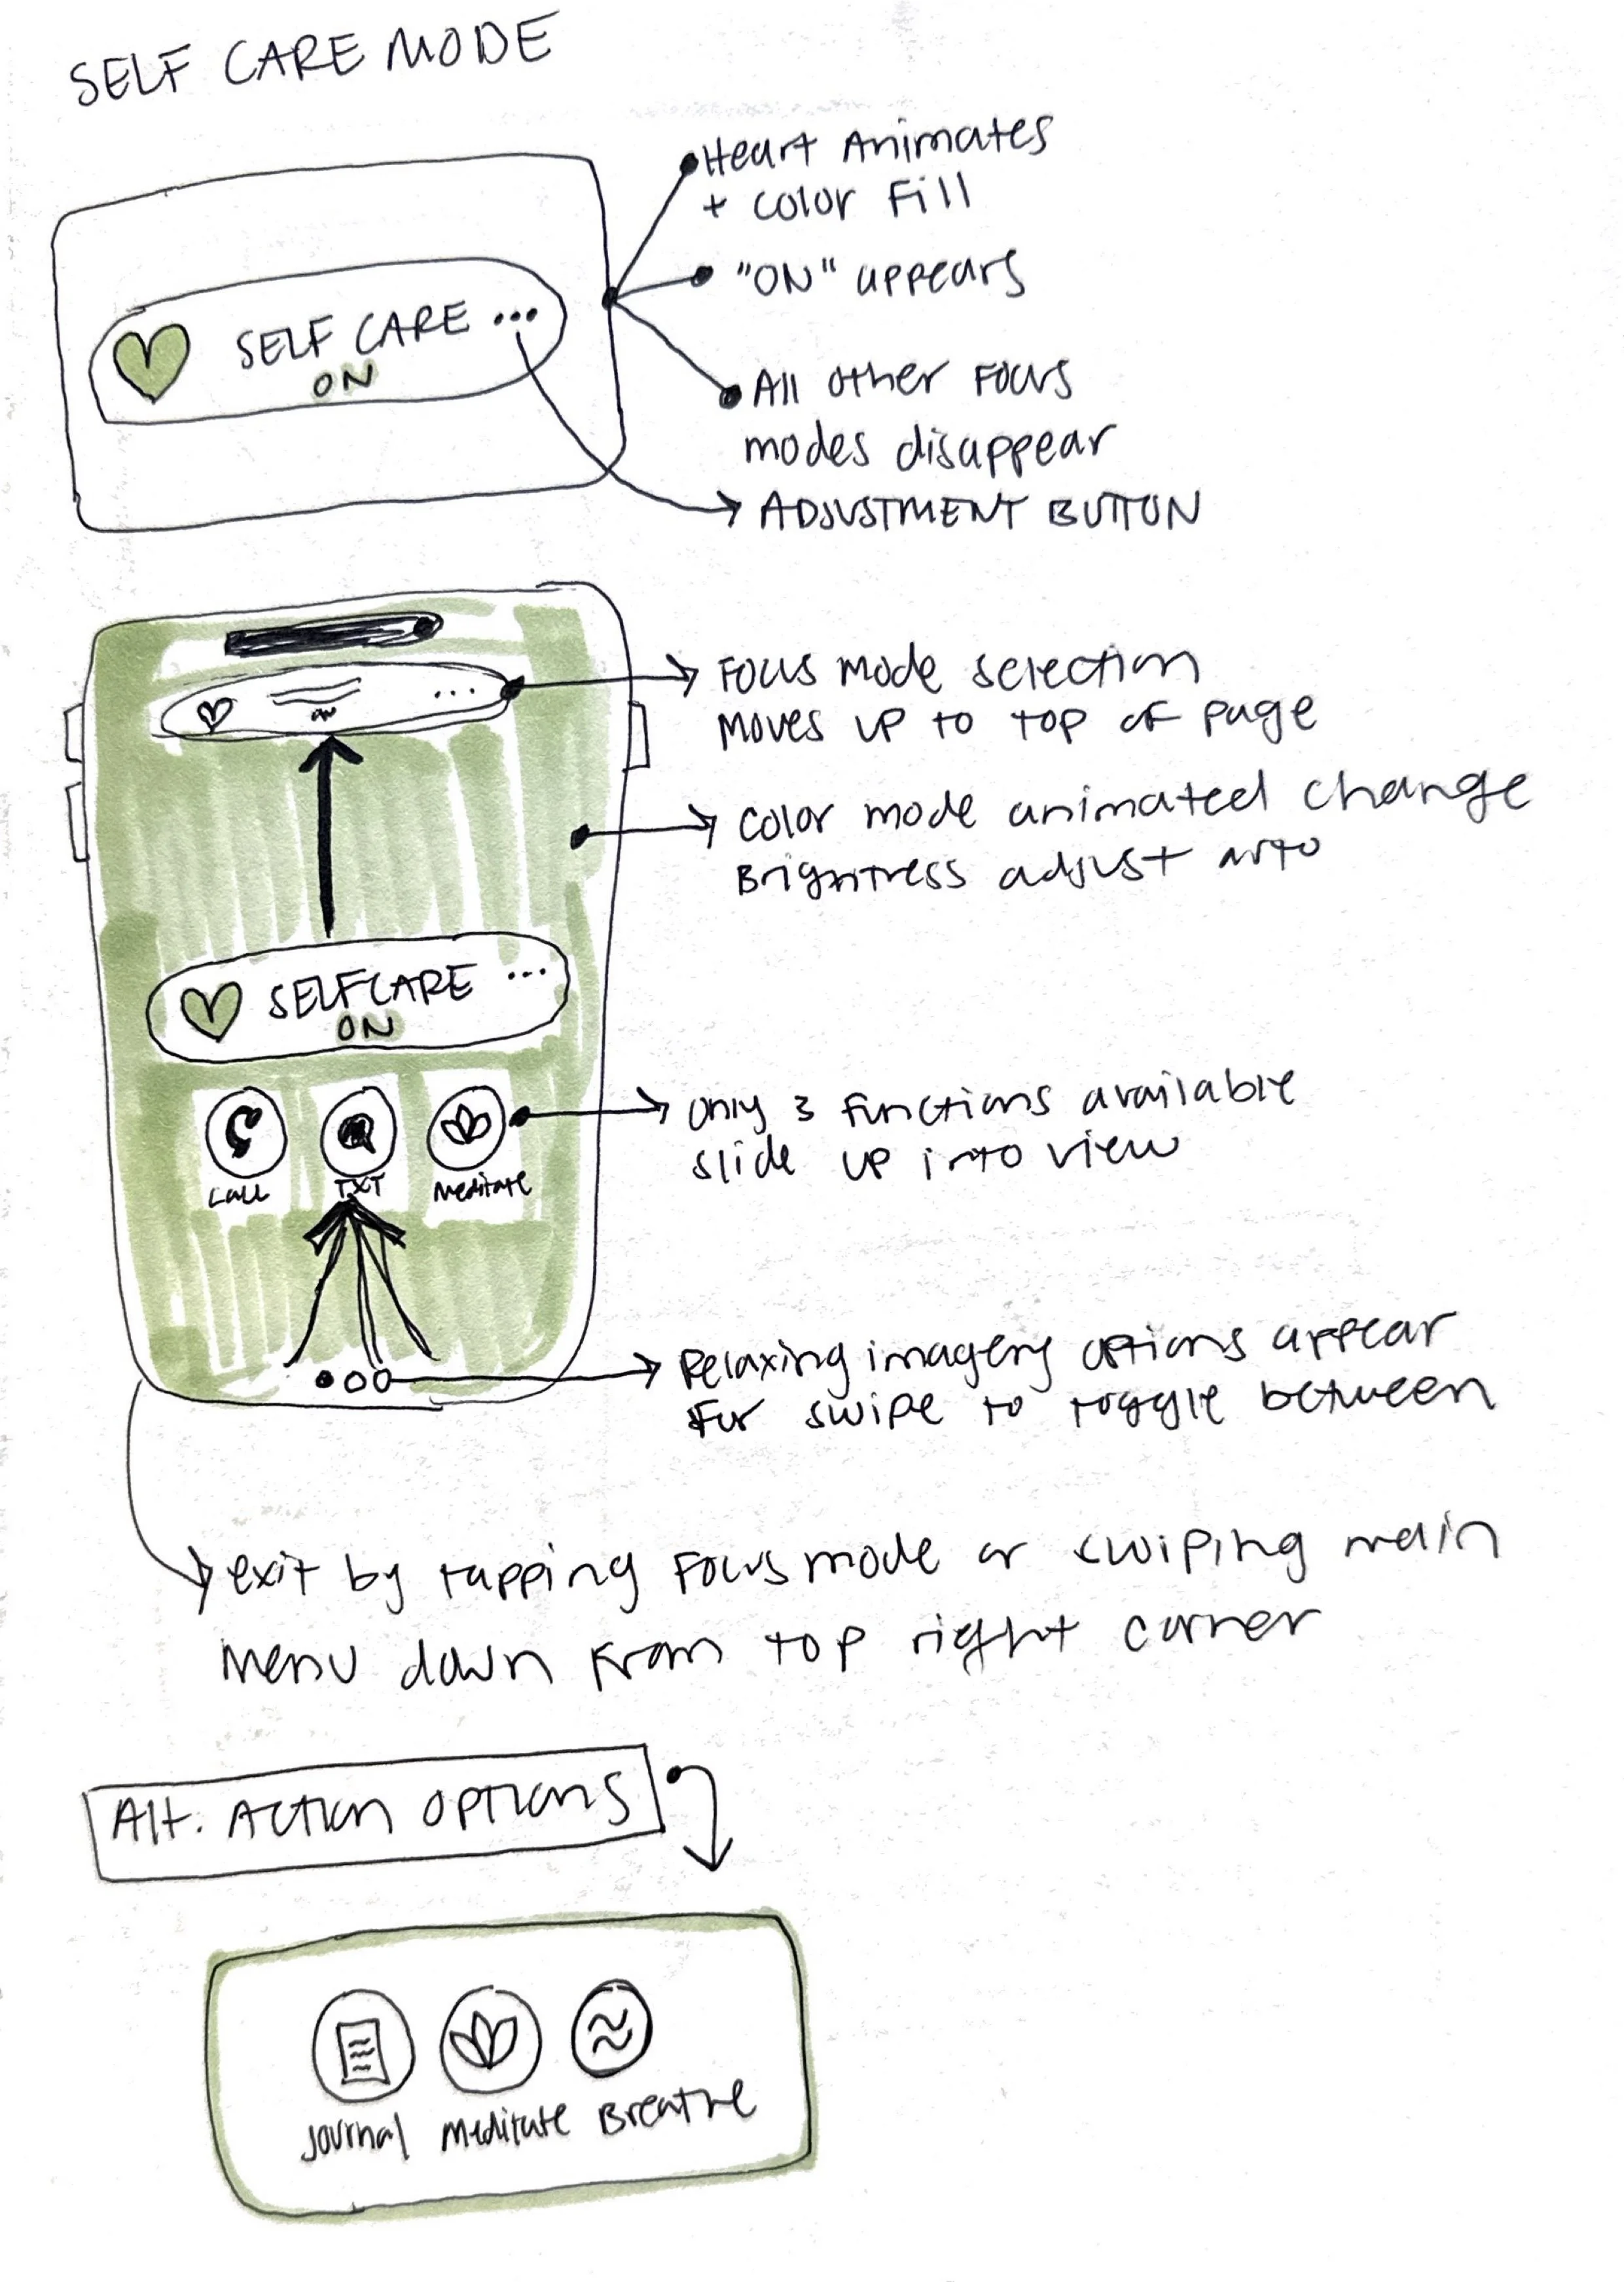 SELF CARE MODE
Heart Animates
+ color Fill
"ON" appears
SELF CARE ...
ON
All other Focus
modes disappear
ADJUSTMENT BUTTON
Focus mode selection
moves up to top of page
...
ON
color mode animated change
Brightness adjust auto
SELFCARE ...
ON
only 3 functions available
slide up into view
CALL TXT Meditate
Relaxing imagery options appear
for swipe to toggle between
exit by tapping Focus mode or swiping main
menu down from top right corner
Alt. ACTION OPTIONS
Journal Meditate Breathe